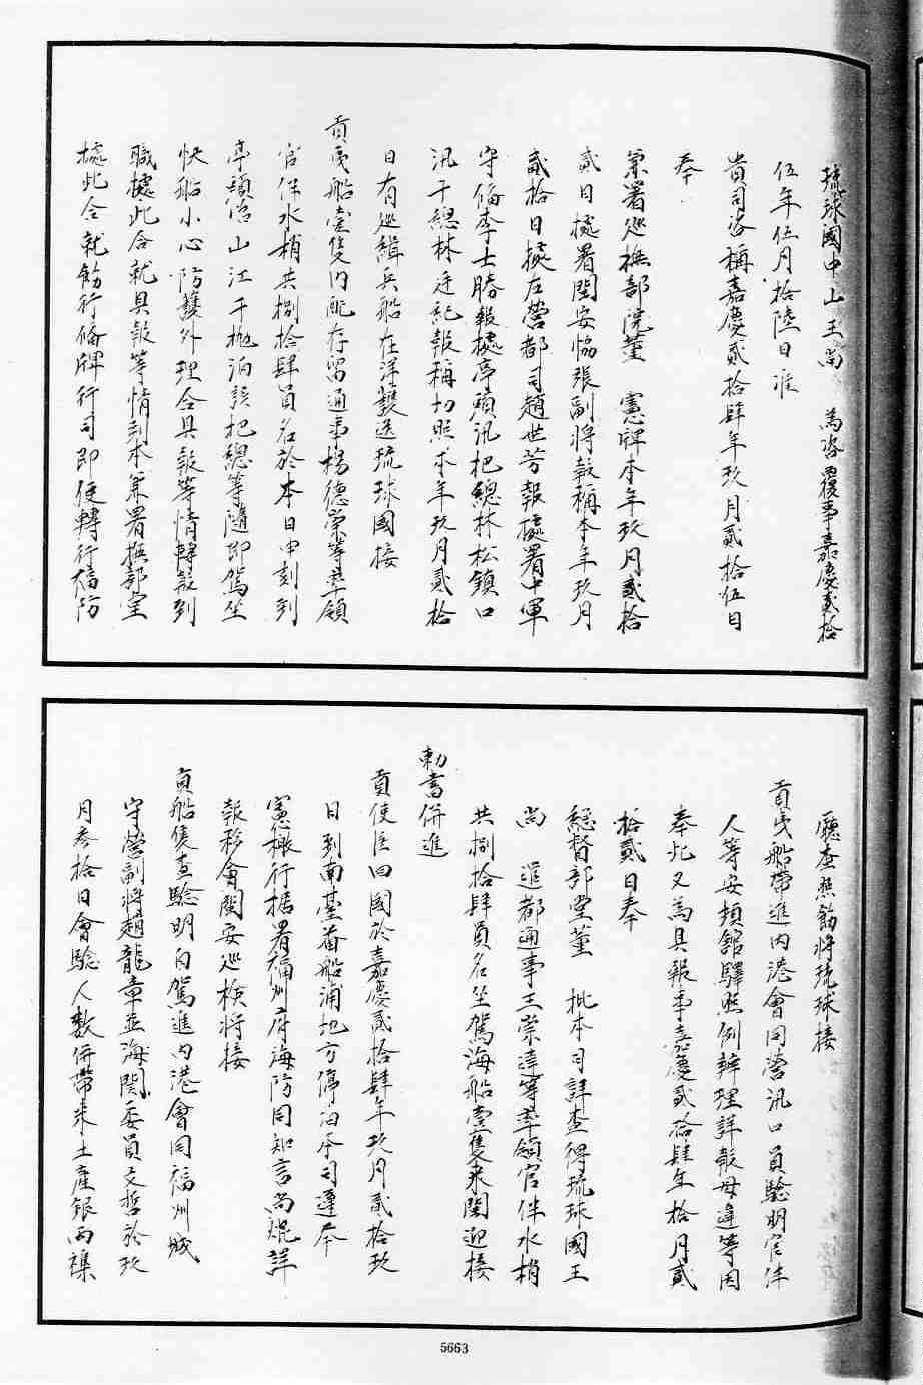 琉球國中山王尚　為咨覆事嘉慶貳拾
伍年伍月拾陸日准
貴司咨稱嘉慶貳拾肆年玖月貳拾伍日
奉
兼署巡撫部院董　憲牌本年玖月貳拾
貳日據署閩安協張副將報稱本年玖月
貳拾日據左營都司趙世芳報據署中軍
守備李士勝報據亭頭汛把總林松鎮口
汛千總林廷紀報稱切照本年玖月貳拾
日有巡緝兵船在洋護送琉球國接
貢夷船壹隻内配存留通事楊德榮等率領
官伴水梢共捌拾肆員名於本日申刻到
亭頭怡山江干抛泊該把總等隨即駕坐
快船小心防護外理合具報等情轉報到
職據此合就具報等情到本兼署撫部堂
據此合就飭行備牌行司即便轉行福防
廳查照飭將琉球接
貢夷船帶進内港會同營汛口員驗明官伴
人等安頓館驛照例辦理詳報毋違等因
奉此又為具報事嘉慶貳拾肆年拾月貳
拾貳日奉
總督部堂董　批本司詳查得琉球國王
尚　遣都通事王崇達等率領官伴水梢
共捌拾肆員名坐駕海船壹隻来閩迎接
勅書併進
貢使臣回國於嘉慶貳拾肆年玖月貳拾玖
日到南臺番船浦地方停泊本司遵奉
憲檄行据署福州府海防同知言尚焜詳
報移會閩安巡檢將接
貢船隻查驗明白駕進内港會同福州城
守營副將趙龍章並海關委員文哲於玖
月叁拾日會驗人數併帶来土產銀両襍
5663